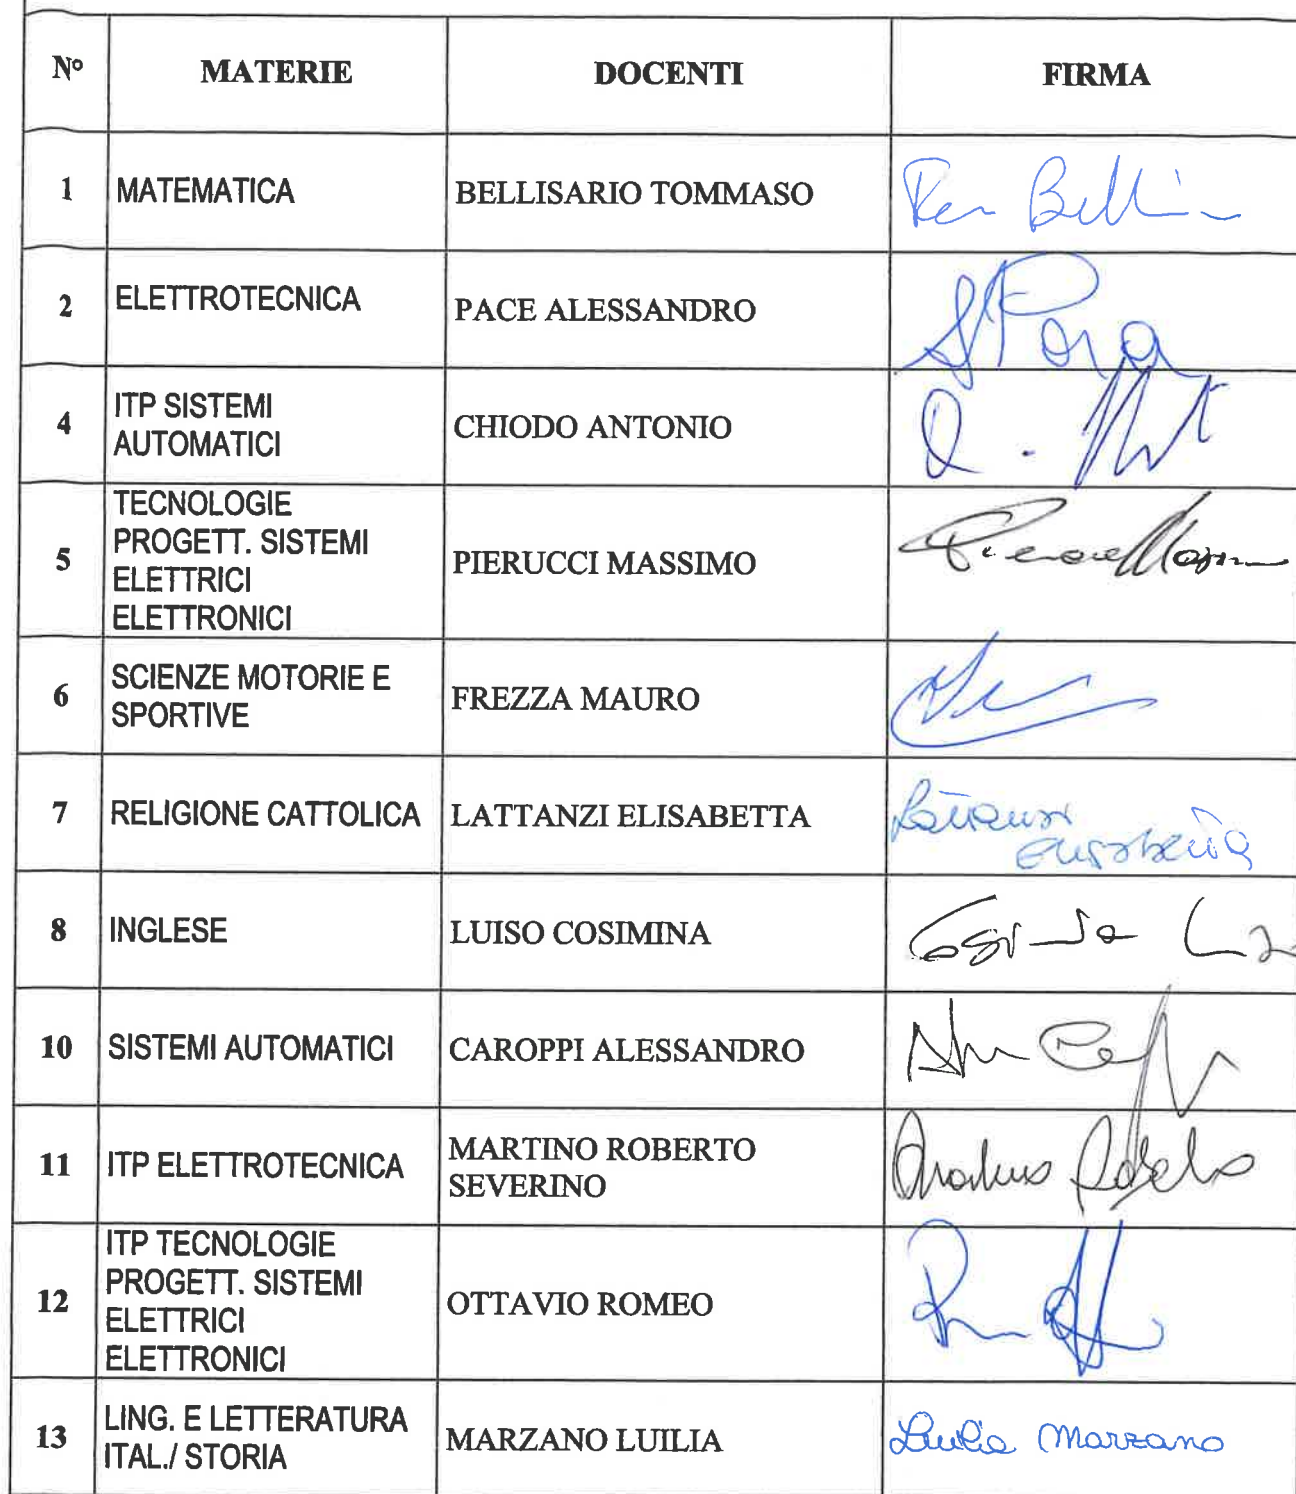 N° MATERIE DOCENTI FIRMA
1 MATEMATICA BELLISARIO TOMMASO
2 ELETTROTECNICA PACE ALESSANDRO
4 ITP SISTEMI AUTOMATICI CHIODO ANTONIO
5 TECNOLOGIE
PROGETT. SISTEMI
ELETTRICI
ELETTRONICI
PIERUCCI MASSIMO
6 SCIENZE MOTORIE E
SPORTIVE
FREZZA MAURO
7 RELIGIONE CATTOLICA LATTANZI ELISABETTA Lattanzi
Elisabetta
8 INGLESE LUISO COSIMINA
10 SISTEMI AUTOMATICI CAROPPI ALESSANDRO
11 ITP ELETTROTECNICA MARTINO ROBERTO
SEVERINO
12 ITP TECNOLOGIE
PROGETT. SISTEMI
ELETTRICI
ELETTRONICI
OTTAVIO ROMEO
13 LING. E LETTERATURA
ITAL./ STORIA
MARZANO LUILIA Luilia Marzano